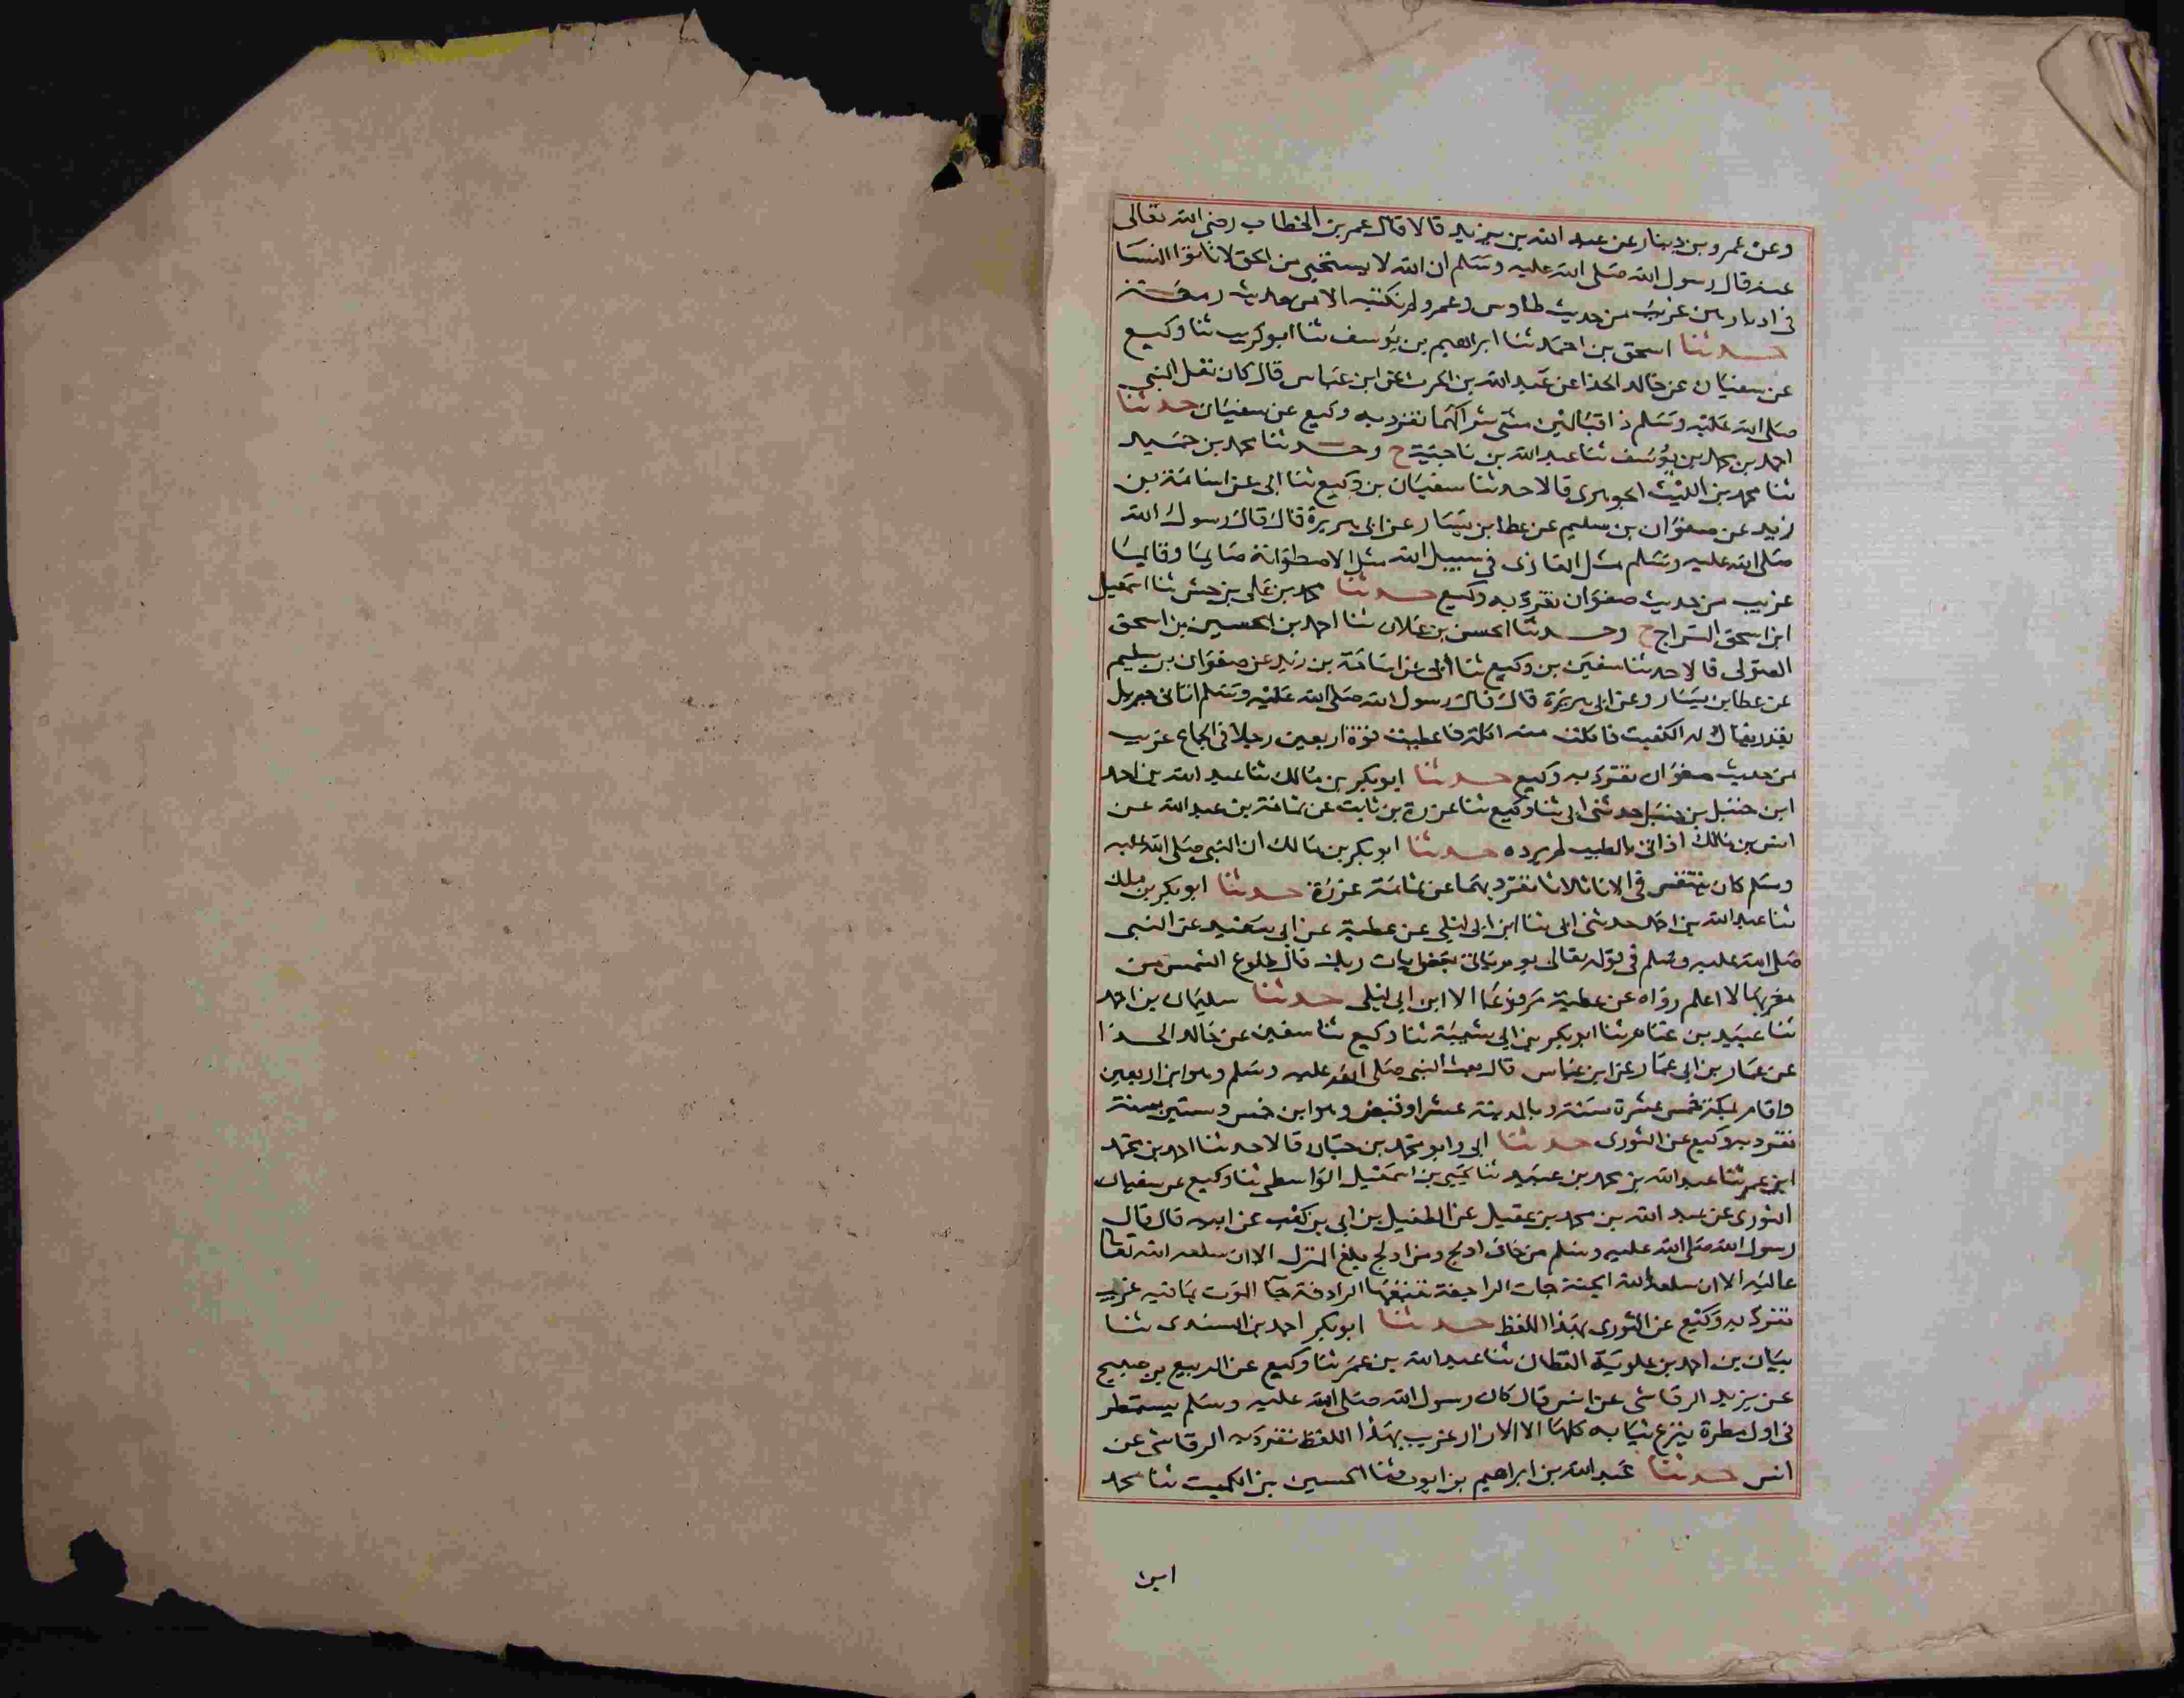 وعن عمرو بن دينار عن عبد الله بن يزيد قالا قال عمر بن الخطاب رضى الله تعالى
عنه قال رسول الله صلى الله عليه وسلم ان الله لا يستحيى من الحق لا تاتوا النسا
فى ادبارهن غريب من حديث طاوس وعمرو لم نكتبه الا من حديث زمعة
حدثنا اسحق بن احمد ثنا ابراهيم بن يوسف ثنا ابو كريب ثنا وكيع
عن سفيان عن خالد الحذا عن عبد الله بن الحرث عن ابن عباس قال كان نعل النبى
صلى الله عليه وسلم ذا قبالين مثنى شراكهما تفرد به وكيع عن سفيان حدثنا
احمد بن محمد بن يوسف ثنا عبد الله بن ناجية ح وحدثنا محمد بن حميد
ثنا محمد بن الليث الجوهرى قالا حدثنا سفيان بن وكيع ثنا ابى عن اسامة بن
زيد عن صفوان بن سليم عن عطا بن يسار عن ابى هريرة قال قال رسول الله
صلى الله عليه وسلم مثل الغازى فى سبيل الله مثل الاصطوانة صايما وقايما
غريب من حديث صفوان تفرد به وكيع حدثنا محمد بن على بن حبش ثنا اسمعيل
ابن اسحق السراج ح وحدثنا الحسن بن علان ثنا احمد بن الحسين بن اسحق
الصوفى قالا حدثنا سفين بن وكيع ثنا ابى عن اسامة بن زيد عن صفوان بن سليم
عن عطا بن يسار وعن ابى هريرة قال قال رسول الله صلى الله عليه وسلم اتانى جبريل
بقدر يقال له الكفيت فاكلت منه اكلة فاعطيت قوة اربعين رجلا فى الجماع غريب
من حديث صفوان تفرد به وكيع حدثنا ابو بكر بن مالك ثنا عبد الله بن احمد
ابن حنبل بن حنبل حدثنى ابى ثنا وكيع ثنا عزرة بن ثابت عن ثمامة بن عبد الله عن
انس بن مالك اذا اتى بالطيب لم يرده حدثنا ابو بكر بن مالك ان النبى صلى الله عليه
وسلم كان يتنفس فى الانا ثلاثا تفرد بهما عن ثمامة عزرة حدثنا ابو بكر بن ملك
ثنا عبد الله بن احمد حدثنى ابى ثنا ابن ابى ليلى عن عطية عن ابى سعيد عن النبى
صلى الله عليه وسلم فى قوله تعالى يوم ياتى بعض ايات ربك قال طلوع الشمس من
مغربها لا اعلم رواه عن عطية مرفوعا الا ابن ابى ليلى حدثنا سليمان بن احمد
ثنا عبيد بن غنام ثنا ابو بكر بن ابى شيبة ثنا وكيع ثنا سفين عن خالد الحذا
عن عمار بن ابى عمار عن ابن عباس قال بعث النبى صلى الله عليه وسلم وهو ابن اربعين
واقام بمكة خمس عشرة سنة وبالمدينة عشرا وقبض وهو ابن خمس وستين سنة
تفرد به وكيع عن الثورى حدثنا ابى وابو محمد بن حيان قالا حدثنا احمد بن محمد
ابن عمر ثنا عبد الله بن محمد بن عبيد ثنا يحيى بن اسمعيل الواسطى ثنا وكيع عن سفيان
الثورى عن عبد الله بن محمد بن عقيل عن الطفيل بن ابى بن كعب عن ابيه قال قال
رسول الله صلى الله عليه وسلم من خاف ادلج ومن ادلج بلغ المنزل الا ان سلعة الله تعالى
غالية الا ان سلعة الله الجنة جات الراجفة تتبعها الرادفة جا الموت بما فيه غريب
تفرد به وكيع عن الثورى بهذا اللفظ حدثنا ابو بكر احمد بن السندى ثنا
بيان بن احمد بن علوية القطان ثنا عبد الله بن عمر ثنا وكيع عن الربيع بن صبيح
عن يزيد الرقاشى عن انس قال كان رسول الله صلى الله عليه وسلم يستمطر
فى اول مطرة ينزع ثيابه كلها الا الازار غريب بهذا اللفظ تفرد به الرقاشى عن
انس حدثنا عبد الله بن ابراهيم بن ايوب ثنا الحسين بن الكميت ثنا محمد
ابن